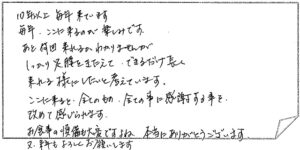 10年以上 毎年 来ています
毎年、ここに来るのが 楽しみです。
あと 何回 来れるか わかりませんが
しっかり 足腰を きたえて できるだけ 長く
来れる 様に したいと 考えています。
ここに来ると、全てのもの、全ての事に 感謝する事を
改めて 感じられます。
お食事の準備も大変ですよね 本当に ありがとうございます
又、来年も よろしく お願いします